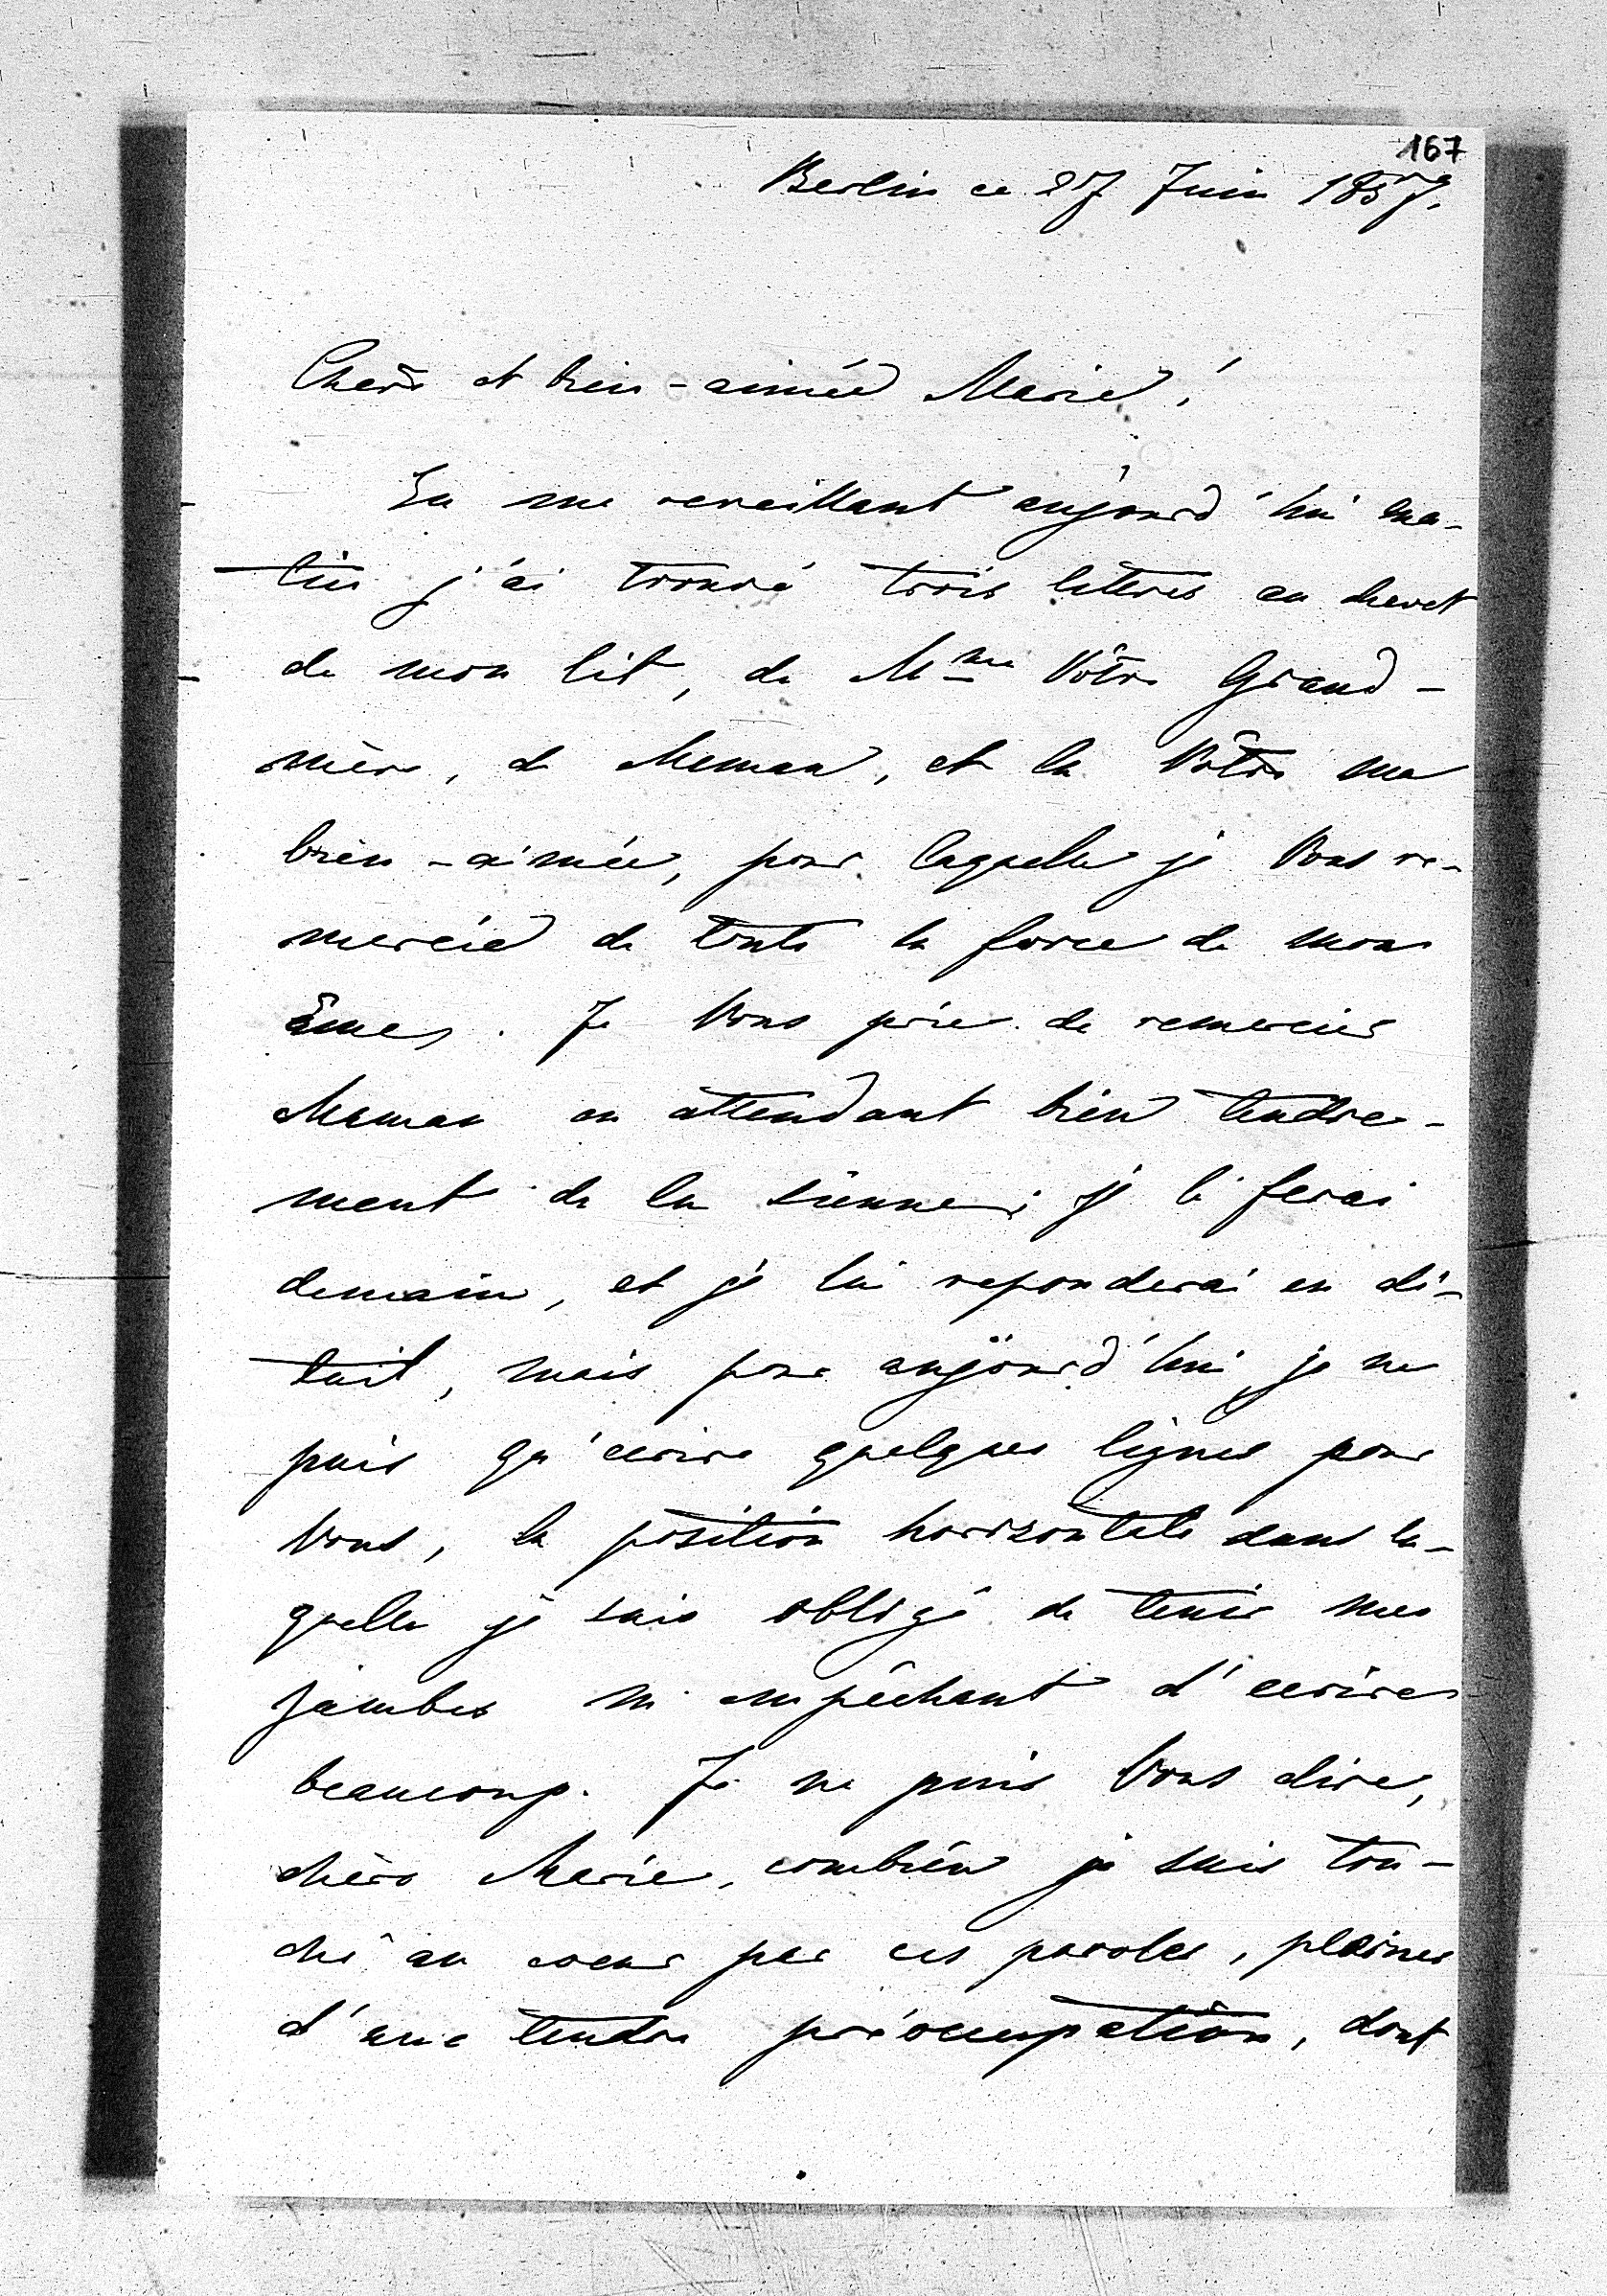 167
Berlin ce 27 Juin 1857.
Chère et bien-aimée Marie!
En me reveillant aujourd'hui ma-
tin j'ai trouvé trois lettres au chevet
de mon lit, de Mme Vôtre Grand-
mère, de Maman, et la Vôtre ma
bien-aimée, pour laquelle je Vous re-
mercie de toute la force de mon
âme. Je Vous prie de remercier
Maman en attendant bien tendre-
ment de la sienne; je le ferai
demain, et je lui reponderai en dé-
tail, mais pour aujourd'hui je ne
puis qu'ecrire quelques lignes pour
Vous, la position horizontale dans la-
quelle je suis obligé de tenir mes
jambes m'empêchant d'ecrire
beaucoup. Je ne puis Vous dire,
chère Marie, combien je suis tou-
ché au coeur par ces paroles, pleines
d'une tendre préoccupation, dont